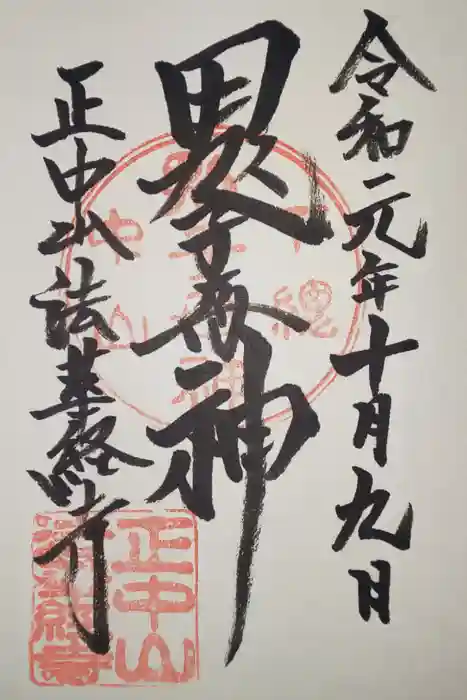 令和元年十月九日
鬼子母神
正中山法華経寺
下總
中山
正中山